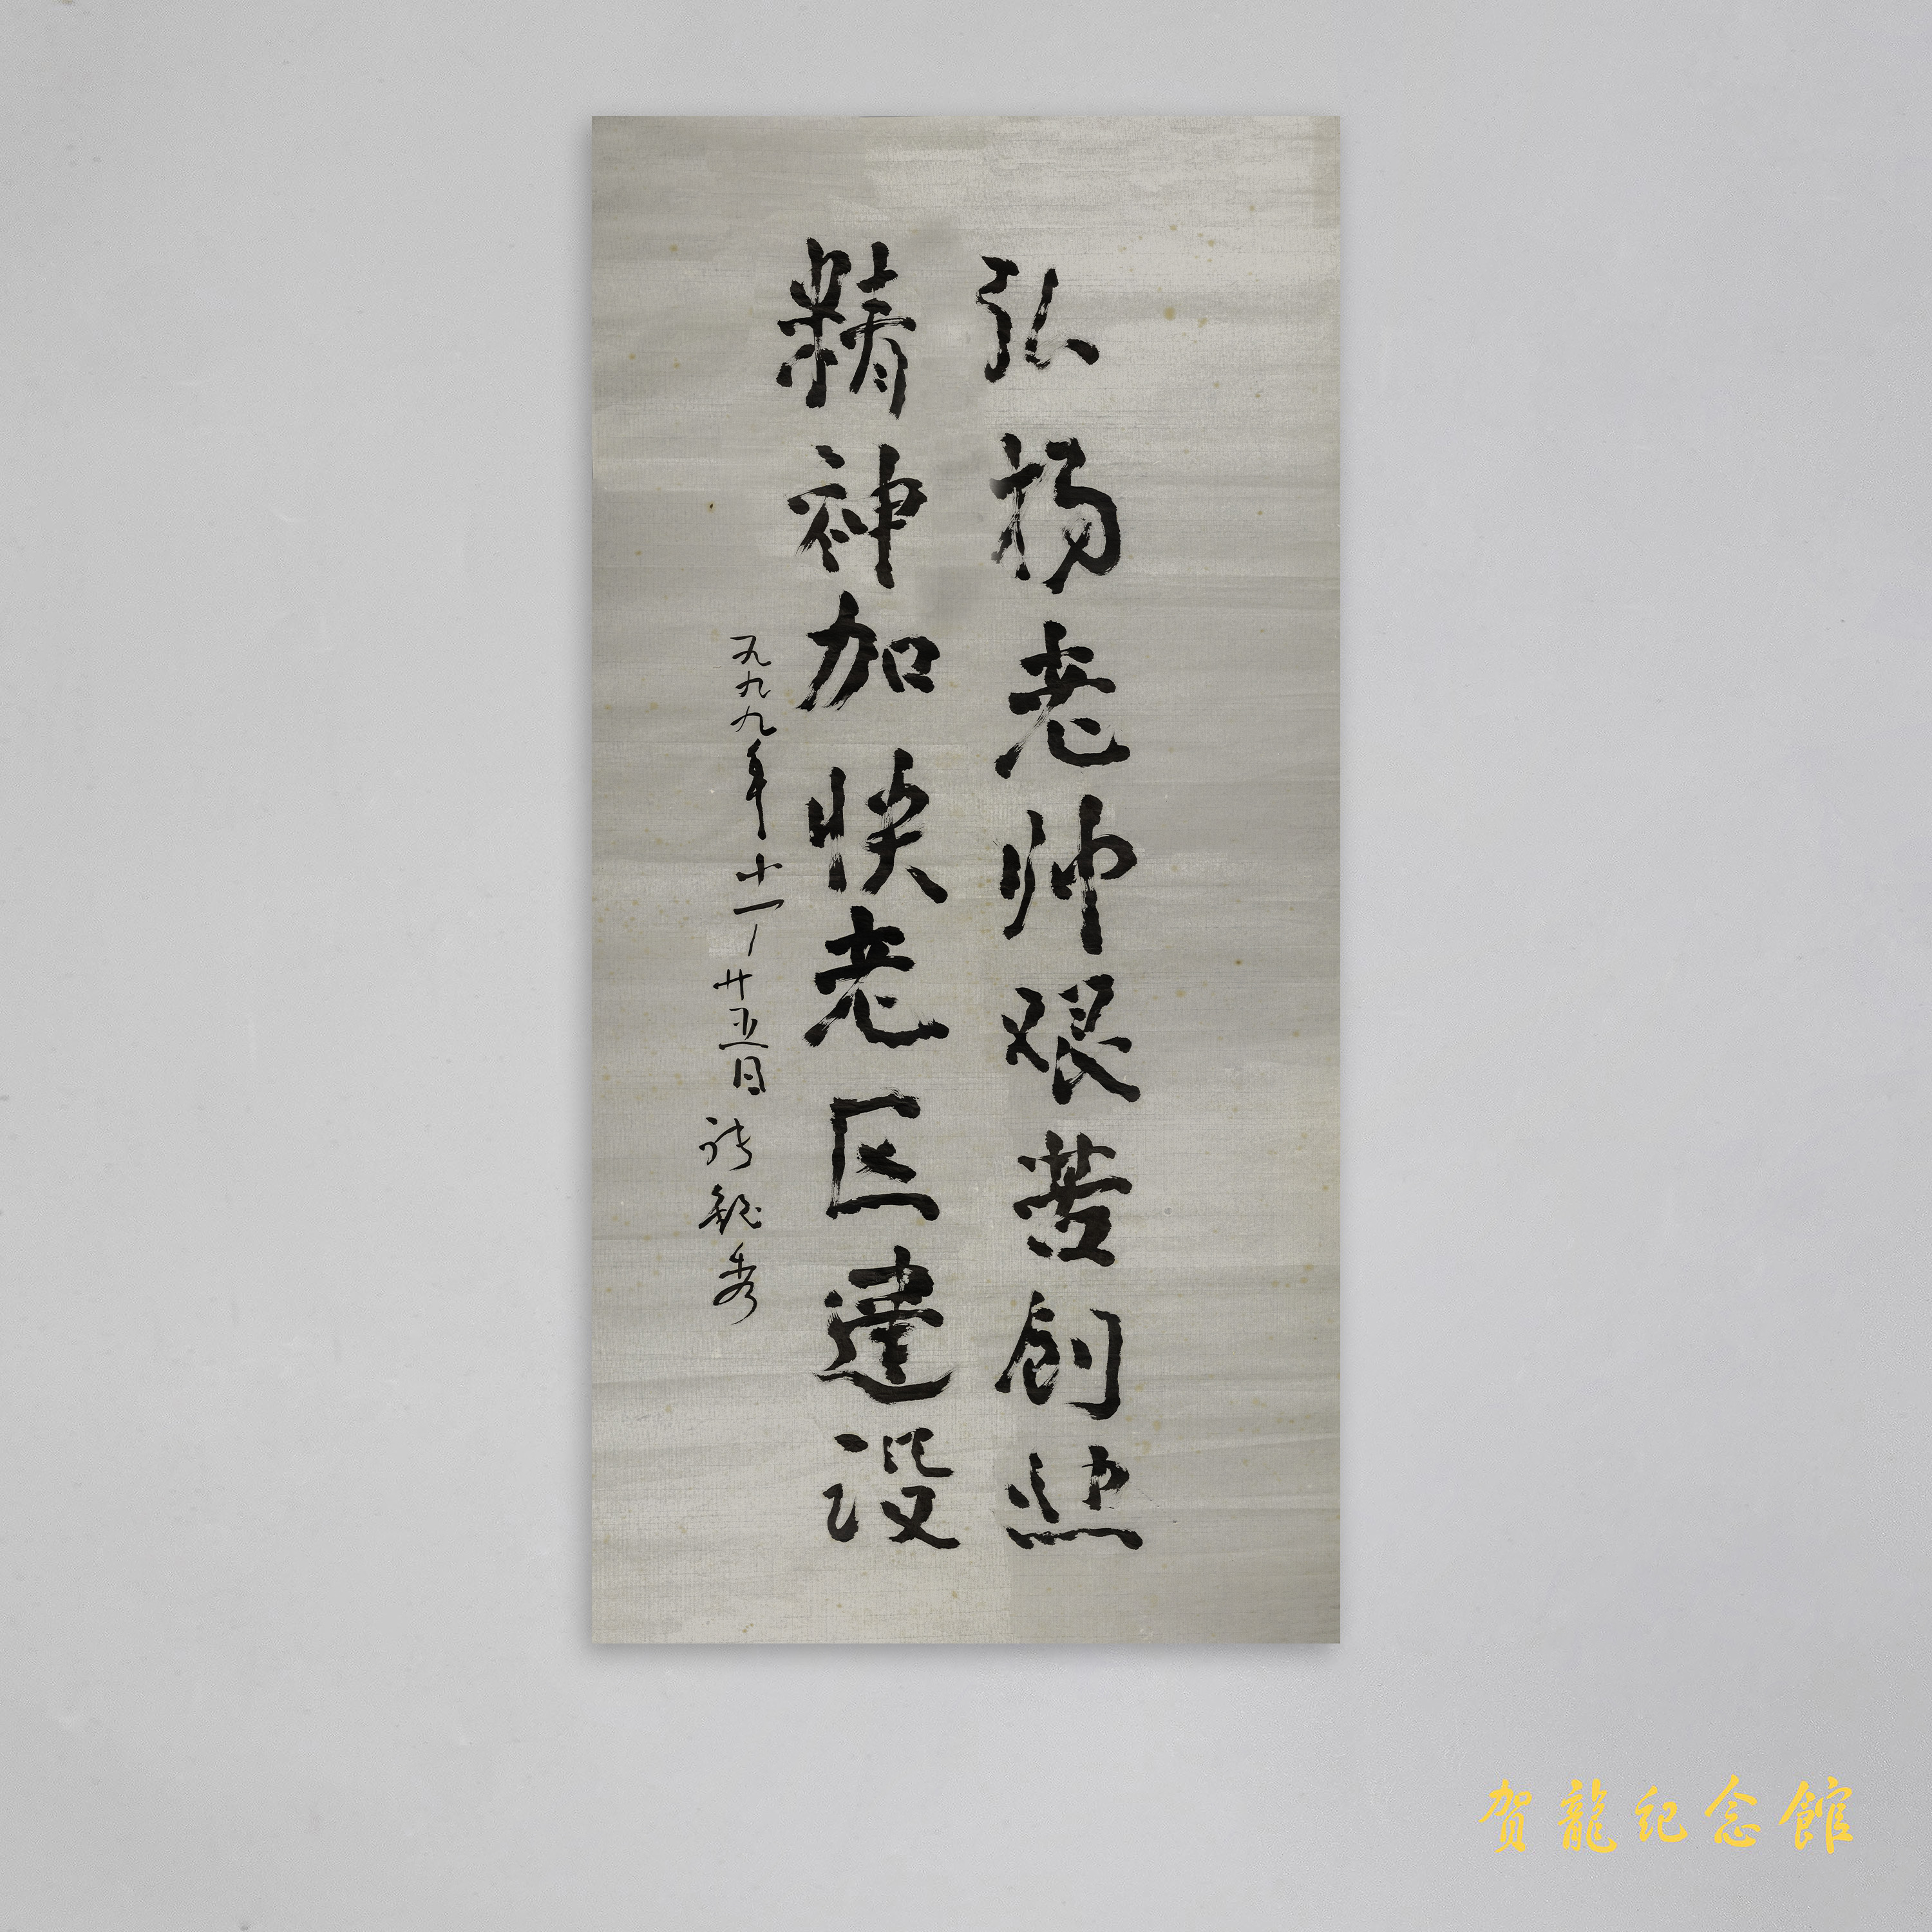 弘扬老帅艰苦创业
精神加快老区建设
一九九九年十一 廿五日
贺龍纪念館